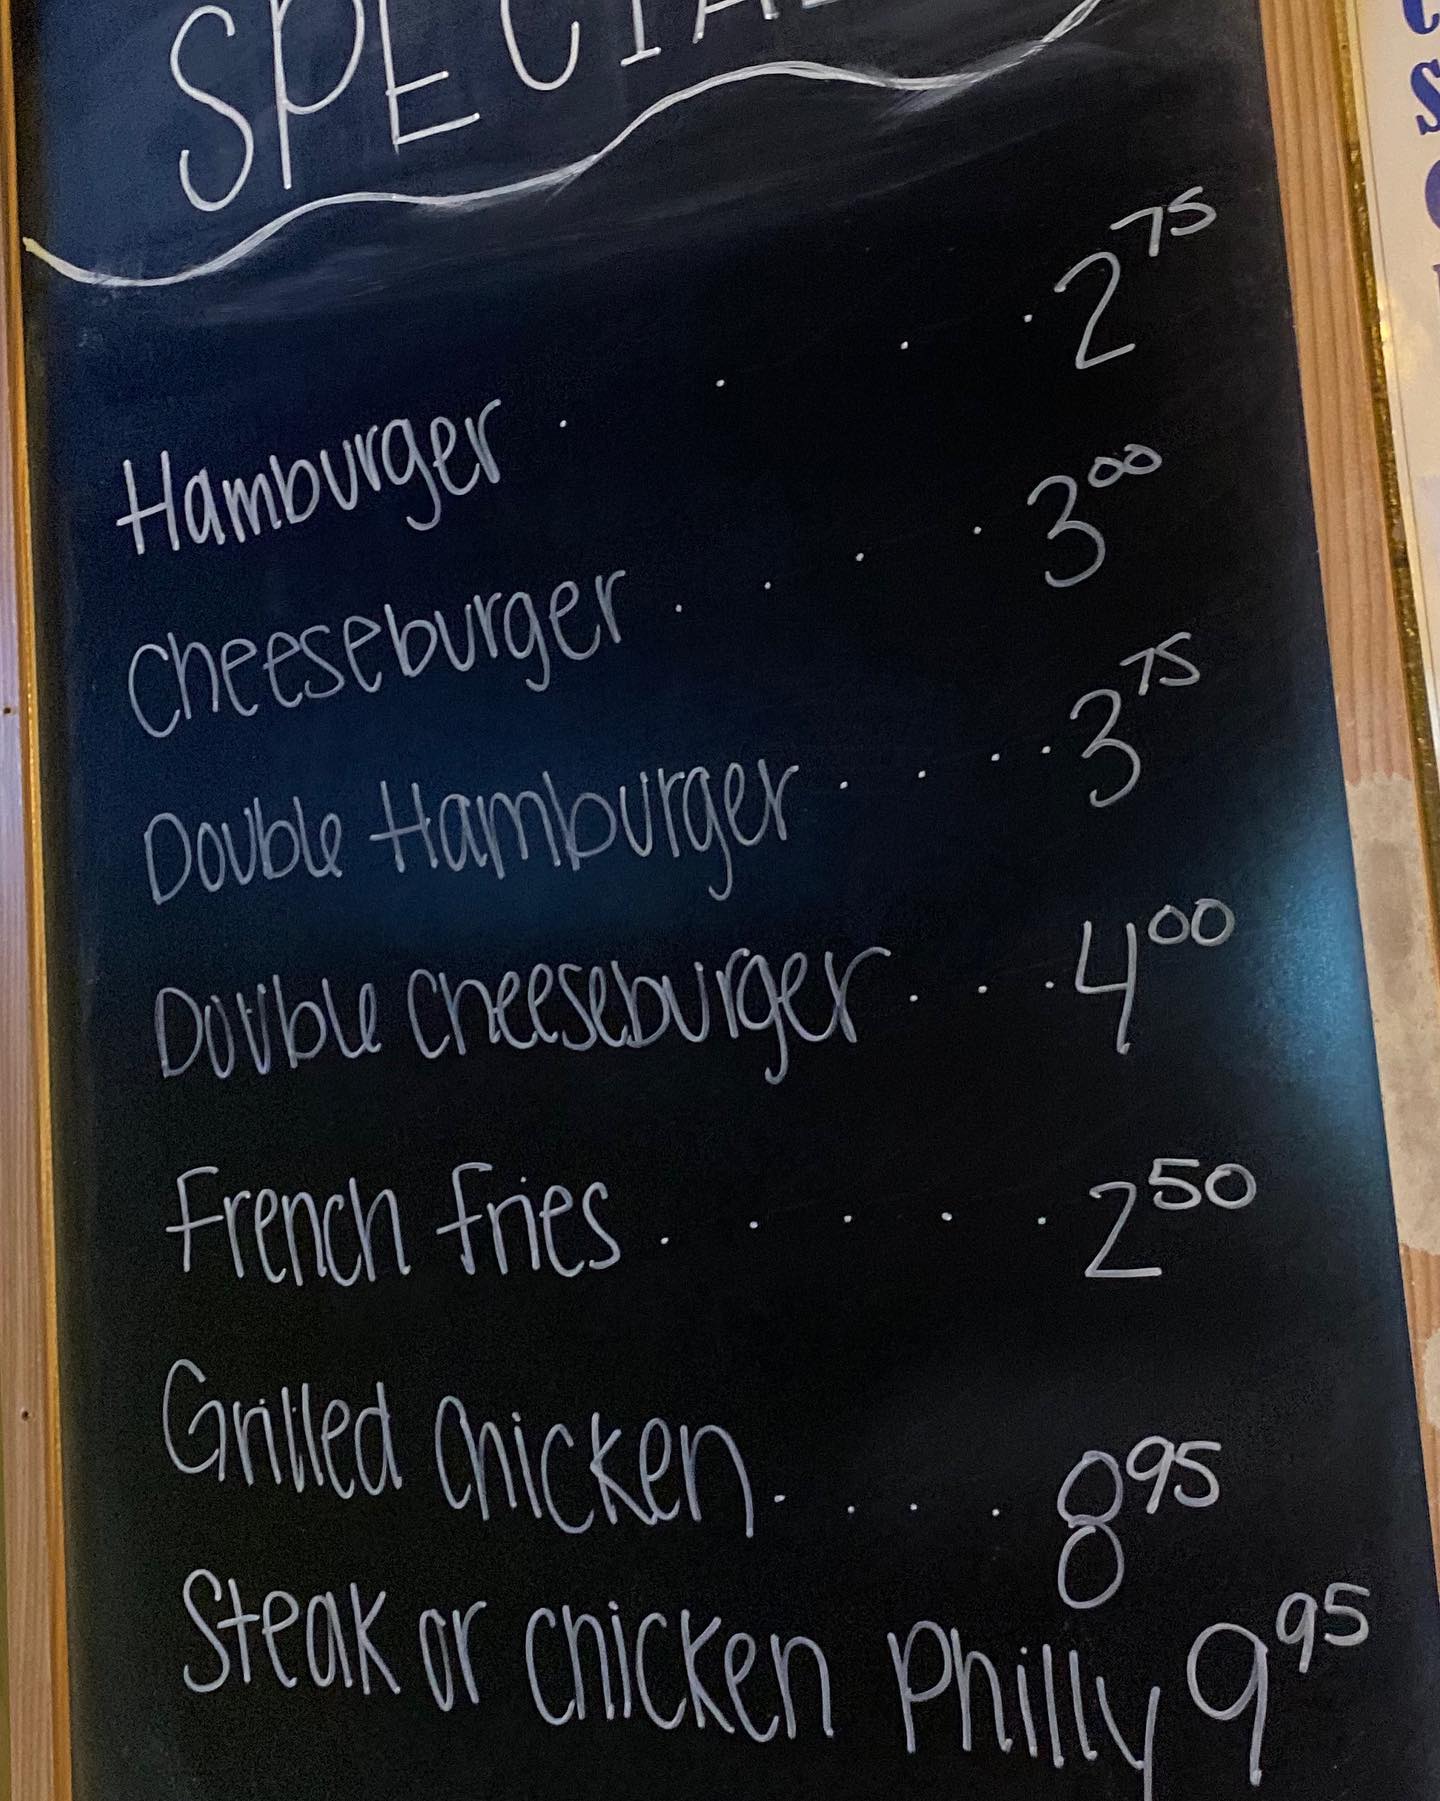 SPECIAL
Hamburger . . . . 2 75
Cheeseburger . . . . 3 00
Double Hamburger . . . . 3 75
Double Cheeseburger . . . 4 00
French fries . . . . . 2 50
Grilled Chicken . . . . 8 95
Steak or Chicken Philly 9 95